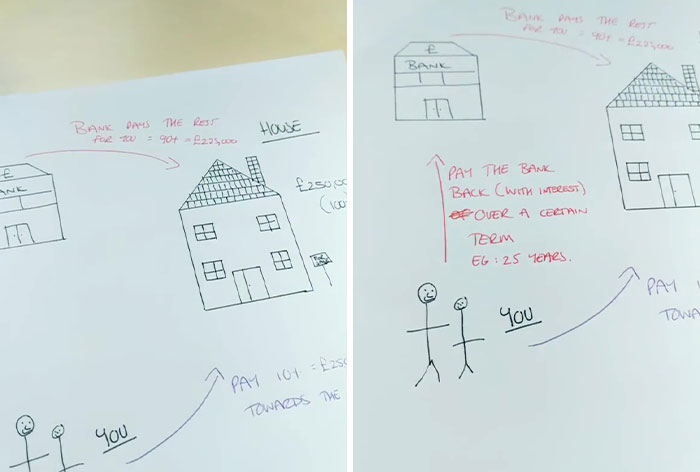 BANK PAYS THE REST
FOR YOU = 90% = £225,000
HOUSE
£
BANK
£250,00
(100
YOU
PAY 10% = £25
TOWARDS THE
BANK PAYS THE REST
FOR YOU = 90% = £225,000
£
BANK
PAY THE BANK
BACK (WITH INTEREST)
OVER A CERTAIN
TERM
EG: 25 YEARS.
YOU
PAY 1
TOWA